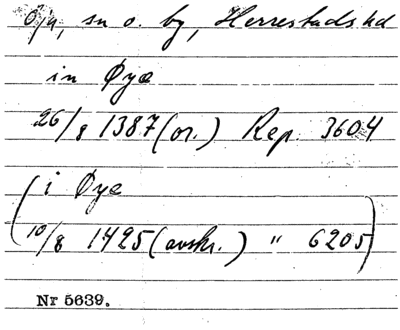 Öja, sn o. by, Herrestads hd
in Øyæ
26/8 1387 (or.) Rep. 3604
(i Øyæ
10/8 1425 (avskr.) " 6205)
Nr 5639.